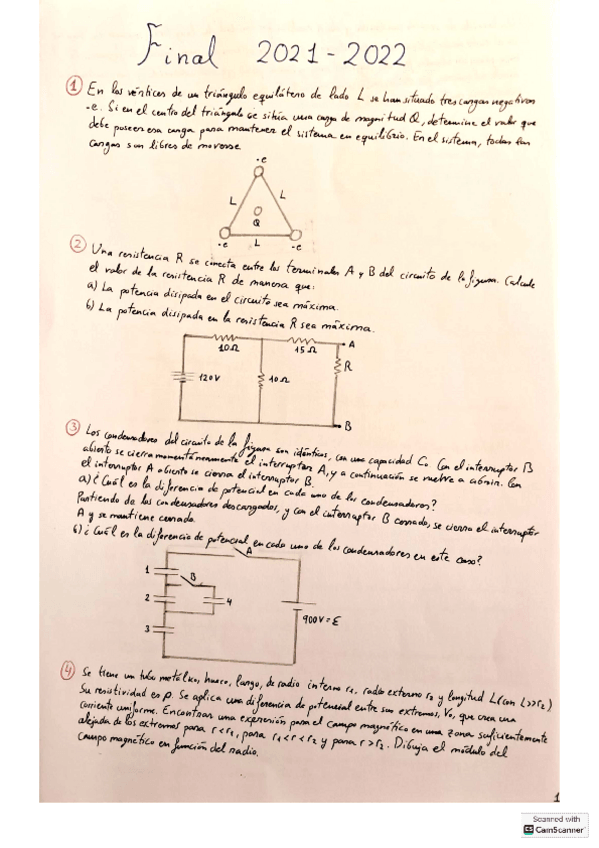 Final 2021-2022
① En los vértices de un triángulo equilátero de lado L se han situado tres cargas negativas
-e. Si en el centro del triángulo se sitúa una carga de magnitud Q, determine el valor que
debe poseer esa carga para mantener el sistema en equilibrio. En el sistema, todas las
cargas son libres de moverse
-e
L
L
Q
-e
L
-e
② Una resistencia R se conecta entre los terminales A y B del circuito de la figura. Calcule
el valor de la resistencia R de manera que:
a) La potencia disipada en el circuito sea máxima.
b) La potencia disipada en la resistencia R sea máxima.
10Ω
15Ω
A
R
120V
10Ω
B
③ Los condensadores del circuito de la figura son idénticos, con una capacidad C₀. Con el interruptor B
abierto se cierra momentáneamente el interruptor A, y a continuación se vuelve a abrir. Con
el interruptor A abierto se cierra el interruptor B.
a) ¿Cuál es la diferencia de potencial en cada uno de los condensadores?
Partiendo de los condensadores descargados, y con el interruptor B cerrado, se cierra el interruptor
A y se mantiene cerrado.
b) ¿Cuál es la diferencia de potencial en cada uno de los condensadores en este caso?
A
1
B
2
4
3
900V=ε
④ Se tiene un tubo metálico, hueco, largo, de radio interno r₁, radio externo r₂ y longitud L (con L>>r₂)
Su resistividad es ρ. Se aplica una diferencia de potencial entre sus extremos, V₀, que crea una
corriente uniforme. Encontrar una expresión para el campo magnético en una zona suficientemente
alejada de los extremos para r<r₁, para r₁<r<r₂ y para r>r₂. Dibuja el módulo del
campo magnético en función del radio.
1
Scanned with
CS CamScanner